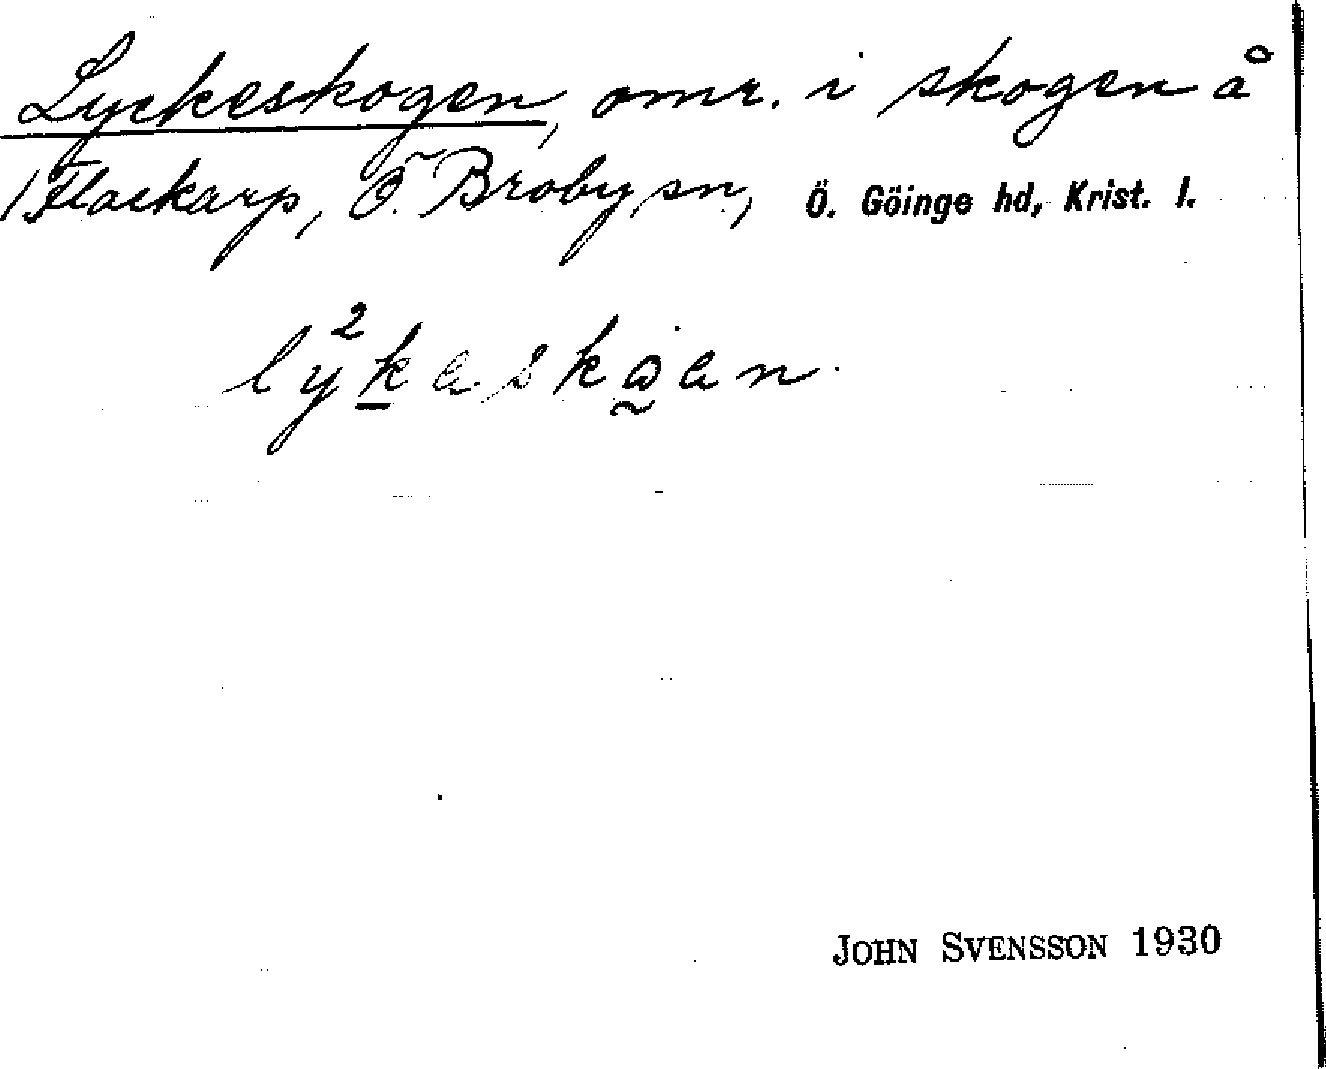 Lyckeskogen, omr. i skogen å
1 Flackarp, Ö. Broby sn, Ö. Göinge hd, Krist. l.
lý²kaskɷan.
JOHN SVENSSON 1930